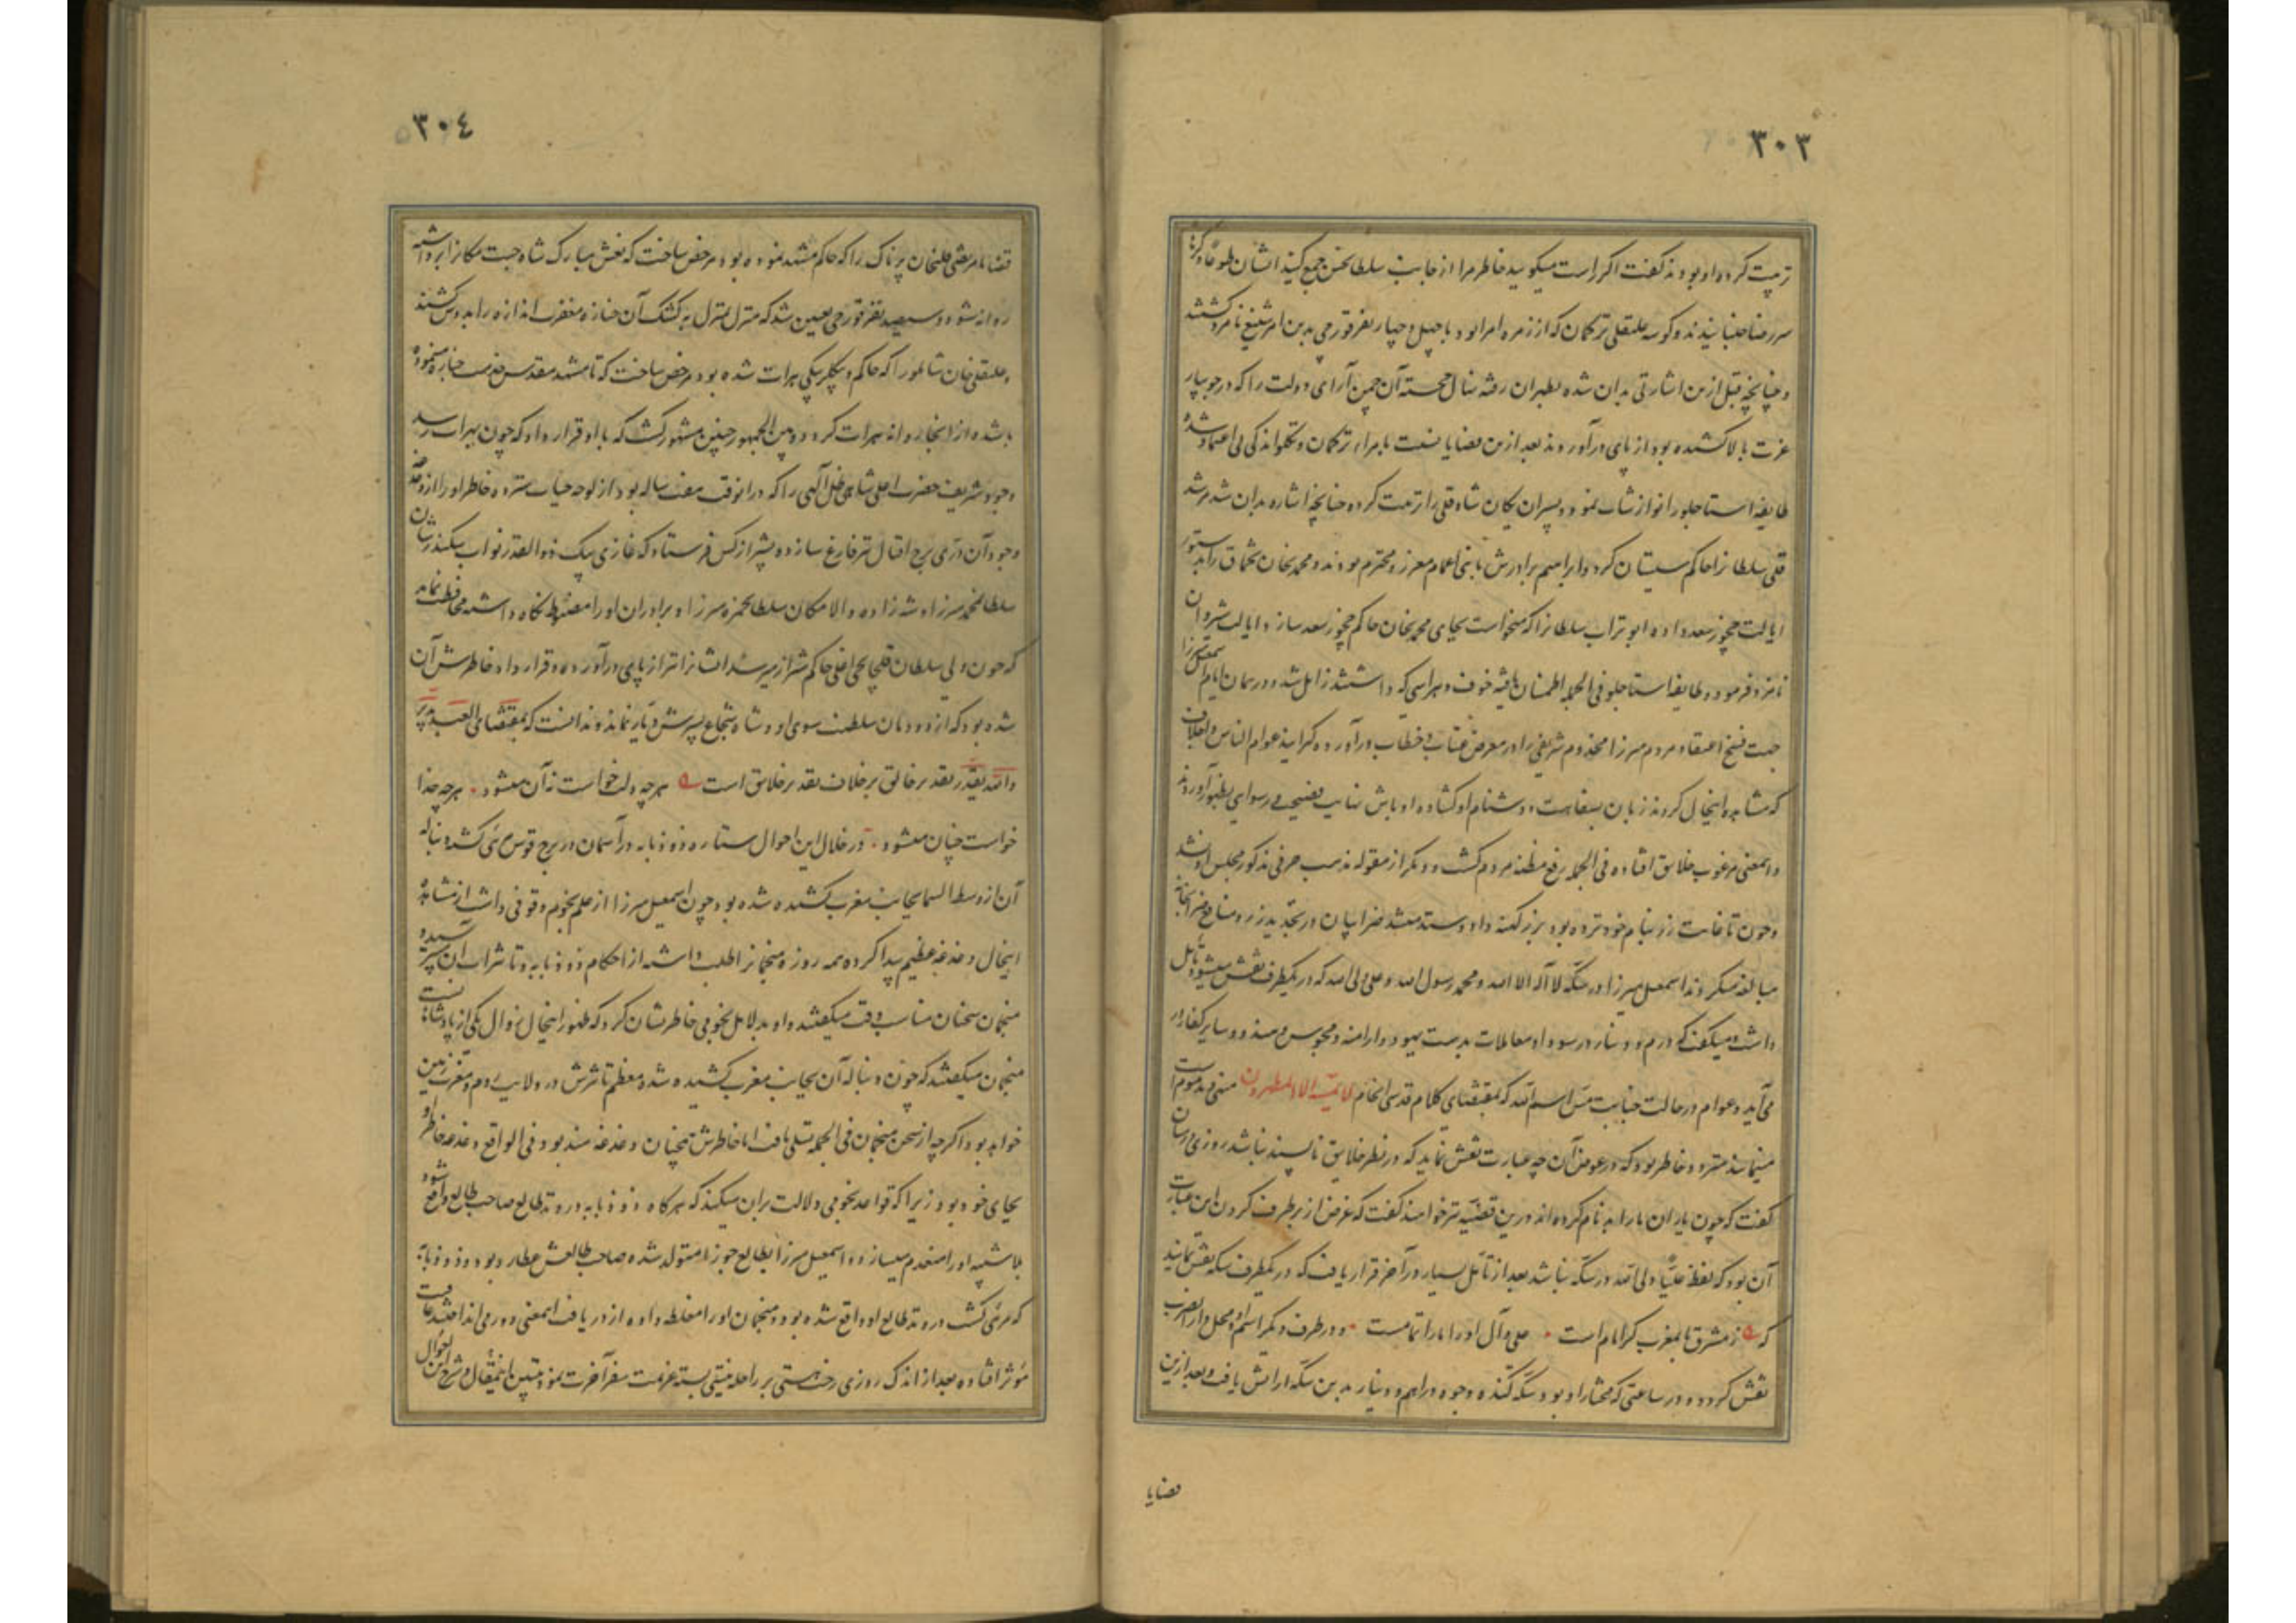 ۳۰۳
تربیت کرده او بودند گفت اگر راست میگویید خاطر مرا از جانب سلطان حسن جمع کنید ایشان طوعا و کرها
سر رضا جنبانیدند و کوسه علیقلی ترکمان که از زمره امرا بود با چهل و چهار نفر قورچی بدین امر شنیع نامزد گشتند
و چنانچه قبل ازین اشارتی بدان شده بطهران رفته نهال خجسته آن چمن آرای دولت را که در جویبار
عزت بالا کشیده بود از پای درآوردند بعد ازین قضایا نسبت بامراء ترکمان و تکلو اندکی بی اعتماد شده
طایفه استاجلو را نوازشات نمود و پسران یکان شاه قلی را تربیت کرده چنانچه اشاره بدان شد مرشد
قلی سلطانرا حاکم سیستان کرد و ابراهیم برادرش با بنی اعمام معزز و محترم بودند و محمدیخان تخماق را بدستور
ایالت چخور سعد داده ابو تراب سلطانرا که میخواست بجای محمدیخان حاکم چخور سعد سازد ایالت شیروان
نامزد فرمود و طایفه استاجلو فی الجمله اطمینان یافته خوف و هراسی که داشتند زایل شد و در همان ایام اسمعیل میرزا
جهت فسخ اعتقاد مردم میرزا مخدوم شریفی را در معرض عتاب و خطاب درآورده گرایند عوام الناس و اجلاف
که مشاهده اینحال کردند زبان بسفاهت و دشنام او گشاده اوباش نهایت فضیحت و رسوایی بظهور آوردند
و اینمعنی مرغوب خلایق افتاده فی الجمله رفع مظنه مردم گشت و دیگر از مقوله مذهب حرفی مذکور مجلس او نشد
و چون تا غایت زر بنام خود نزده بود بزر کهنه داد و ستد میشد ضرابیان در تجدید زر و منافع ضرابخانه
مبالغه میکردند اسمعیل میرزا در سکه لا اله الا الله و محمد رسول الله و علی ولی الله که در یکطرف نقش میشود تامل
داشت و میگفت که درم و دینار در سودا و معاملات بدست یهود و ارامنه و مجوس و هنود و سایر کفار در
می آید و عوام در حالت جنابت مس اسم الله که بمقتضای کلام قدسی انجام لا یمسه الا المطهرون منهی و مذموم است
مینمایند متردد خاطر بود که در عوض آن چه عبارت نقش نماید که در نظر خلایق ناپسند نباشد روزی در میان
گفت که چون یاران ما را بدنام کرده اند درین قضیه نیز خواهند گفت که غرض از بر طرف کردن این عبارت
آن بود که لفظ علیا ولی الله در سکه نباشد بعد از تامل بسیار در آخر قرار یافت که در یکطرف سکه نقش نمایند
که ز مشرق تا بمغرب گر امام است علی و آل او ما را تمام است و در طرف دیگر اسم او و محل دار الضرب
نقش کردند و در ساعتی که مختار او بود سکه کنده وجوه دراهم و دینار بدین سکه آرایش یافت و بعد ازین
قضایا
۳۰۴
قضایا مرتضی قلیخان پرناک را که حاکم مشهد نموده بود مرخص ساخت که نعش مبارک شاه جنت مکانرا برداشته
روانه شود و سیصد نفر قورچی تعیین شد که منزل بمنزل به کشک آن جنازه مغفرت اندازه را بدوش کشند
و علیقلی خان شاملو را که حاکم و بیگلربیگی هرات شده بود مرخص ساخت که تا مشهد مقدس خدمت جنازه مینموده
باشد و از انجا روانه هرات گردد و بین الجمهور چنین مشهور گشت که با او قرار داد که چون بهرات رسد
وجود شریف حضرت اعلی شاهی ظل الهی را که در انوقت هفت ساله بود از لوحه حیات سترده خاطر او را از دغدغه
وجود آن دری برج اقبال نیز فارغ سازد و پیشتر از کس فرستاد که غازی بیک ذوالقدر نواب سکندر شان
سلطان محمد میرزا و شهزاده والا مکان سلطان حمزه میرزا و برادران او را مضبوط نگاه داشته محافظت نماید
که چون ولی سلطان قلخانچی اغلی حاکم شیراز میرسد ایشانرا نیز از پای درآورد و قرار داد خاطرش آن
شده بود که از دودمان سلطنت سوی او و شاه شجاع پسرش دیار نماند و ندانست که بمقتضای العبد یدبر
و الله یقدر تقدیر خالق برخلاف تقدیر خلایق است هر چه دلت خواست نه آن میشود هر چه خدا
خواست چنان میشود در خلال این احوال ستاره ذو ذوابه در آسمان در برج قوس مرئی گشت و دنباله
آن از وسط السما بجانب مغرب کشیده شده بود و چون اسمعیل میرزا از علم نجوم وقوفی داشت از مشاهده
اینحال دغدغه عظیم پیدا کرده همه روزه منجمانرا طلب داشته از احکام ذو ذوابه و تاثیرات آن میپرسید و
منجمان سخنان مناسب وقت میگفتند و او بدلایل نجومی خاطر نشان کرد که ظهور اینحال زوال یکی از پادشاهانست
منجمان میگفتند که چون دنباله آن بجانب مغرب کشیده شده معظم تاثیرش در ولایت روم و مغرب زمین
خواهد بود اگر چه از سخن منجمان فی الجمله تسلی یافت اما خاطرش همچنان دغدغه مند بود و فی الواقع دغدغه خاطر او
بجای خود بود زیرا که قواعد نجومی دلالت بران میکند که هرگاه ذو ذوابه در وتد طالع صاحب طالع واقع شود
بلا شبهه او را منعدم میسازد و اسمعیل میرزا بطالع جوزا متولد شده صاحب طالعش عطارد بود و ذو ذوابه
که مرئی گشت در وتد طالع او واقع شده بود و منجمان او را مغلطه داده از دریافت اینمعنی دور می انداختند عاقبت
موثر افتاده بعد از اندک روزی رخت هستی بر راحله نیستی بسته عزیمت سفر آخرت نمود تبیین اینمقال و شرح این احوال